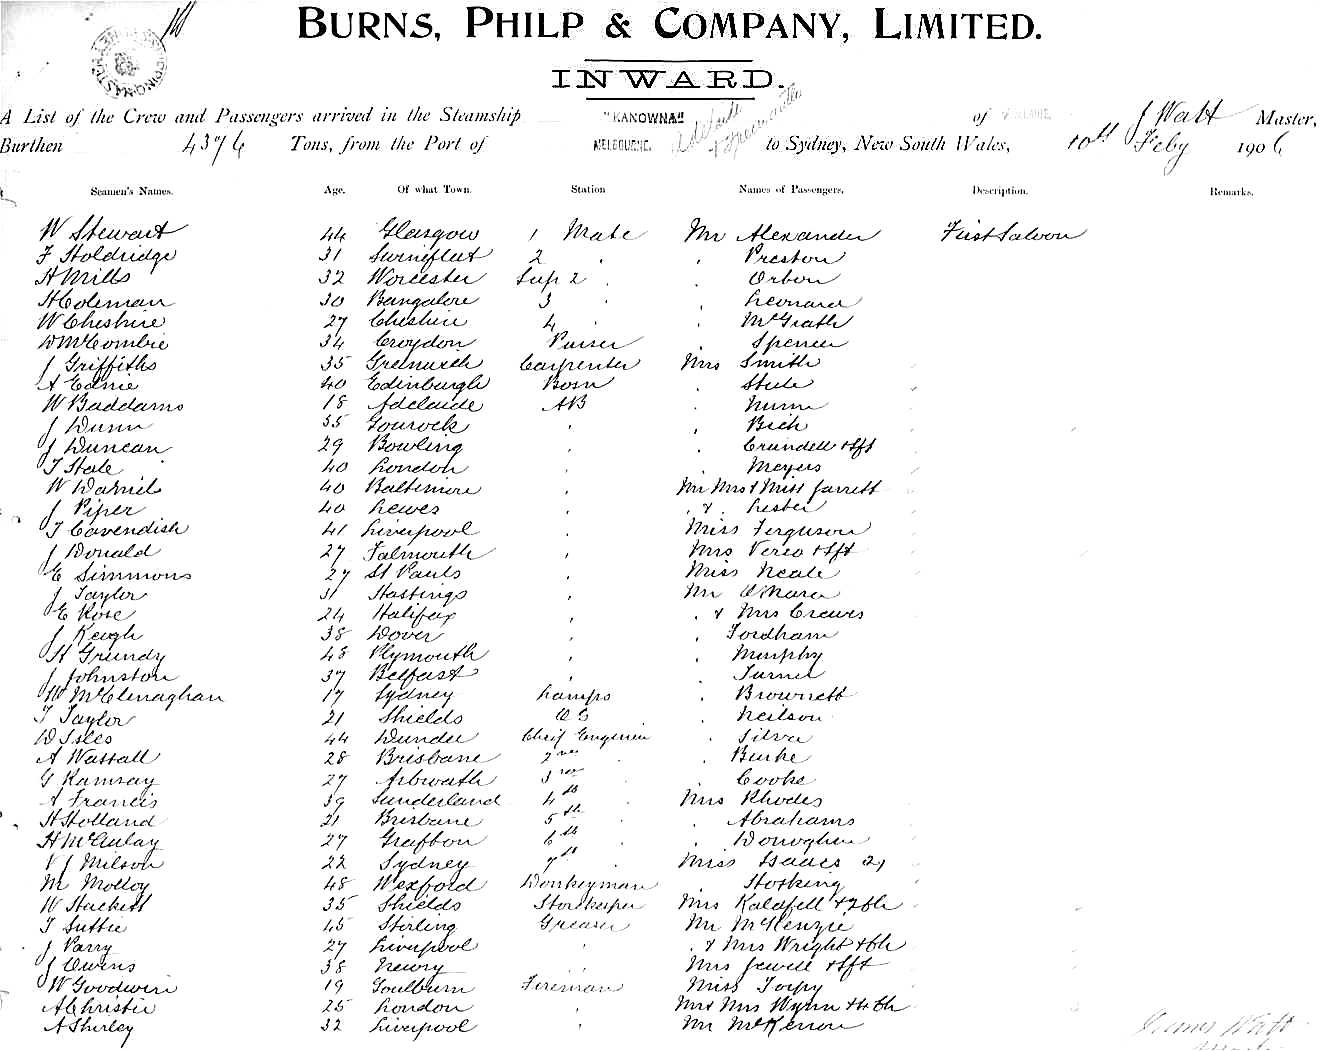 BURNS, PHILP & COMPANY, LIMITED.
INWARD.
A List of the Crew and Passengers arrived in the Steamship "KANOWNA" of J Watt Master,
Burthen 4376 Tons, from the Port of MELBOURNE. Adelaide & Fremantle to Sydney, New South Wales, 10th Feby 1906
Seamen's Names. Age. Of what Town. Station Names of Passengers, Description. Remarks.
W Stewart 44 Glasgow 1 Mate Mr Alexander First Saloon
F Holdridge 31 Swinefleet 2 " " Preston
H Mills 32 Worcester Sup 2 " " Orbon
H Coleman 30 Bangalore 3 " " Leonard
W Cheshire 27 Cheshire 4 " " McGrath
D McCombie 34 Croydon Purser " Spencer
J Griffiths 35 Greenwich Carpenter Mrs Smith
A Ednie 40 Edinburgh Bosn " Steele
W Baddams 18 Adelaide AB " Nunn
J Dunn 35 Gourock " " Bich
J Duncan 29 Bowling " " Crundell & Sft
T Hale 40 London " " Meyers
W Daniels 40 Baltimore " Mr Mrs & Miss Jarrett
J Piper 40 Lewes " " & " Lester
T Cavendish 41 Liverpool " Miss Ferguson
J Donald 27 Falmouth " Mrs Verco & Sft
E Simmons 27 St Pauls " Miss Neale
J Taylor 31 Hastings " Mr O'Mara
E Rose 24 Halifax " " & Mrs Crewes
J Keigh 38 Dover " Fordham
H Grundy 48 Plymouth " " Murphy
J Johnston 37 Belfast " " Turner
W McClenaghan 17 Sydney Lamps " Brownett
T Taylor 21 Shields OS " Neilson
D Isles 44 Dundee Chief Engineer " Silva
A Wastall 28 Brisbane 2nd " Burke
G Ramsay 27 Arbroath 3rd " " Cooke
A Francis 39 Sunderland 4th " Mrs Rhodes
H Holland 21 Brisbane 5th " " Abrahams
H McAulay 27 Grafton 6th " " Donoghue
V J Milson 22 Sydney 7th " Miss Isaacs 2)
M Molloy 48 Wexford Donkeyman " Hosking
W Hackett 35 Shields Storekeeper Mrs Kalafell & 2 Ch
T Suttie 45 Stirling Greaser Mr McKenzie
J Parry 27 Liverpool " " & Mrs Wright & Ch
J Owens 38 Newry " Mrs Jewell & Sft
W Goodwin 19 Goulburn Fireman Miss Torpy
A Christie 25 London " Mr & Mrs Wynn & 4 Ch
A Shirley 32 Liverpool " Mr McKenon
James Watt